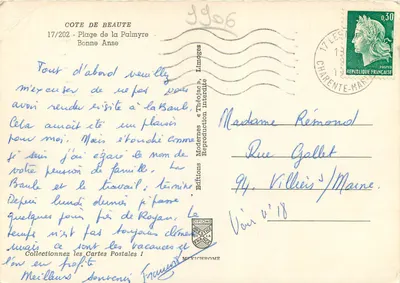 COTE DE BEAUTE
17/202 - Plage de la Palmyre
Bonne Anse
9906
Tout d'abord veuillez
m'excuser de ne pas vous
avoir rendu visite à la Baule.
Cela aurait été un plaisir
pour moi. Mais étourdie comme
je suis j'ai égaré le nom de
votre pension de famille. La
Baule et le travail, terminé
Depuis lundi dernier je passe
quelques jours près de Royan. Le
temps n'est pas toujours clément
mais ce sont les vacances et
l'on en profite
Meilleurs souvenirs
Françoise
Collectionnez les Cartes Postales !
Editions Modernes « Théojac », Limoges
Reproduction interdite
0,30
REPUBLIQUE FRANÇAISE
17 LES
CHARENTE-MAR
Madame Rémond
Rue Gallet
94. Villiers s/ Marne.
Voir n° 18